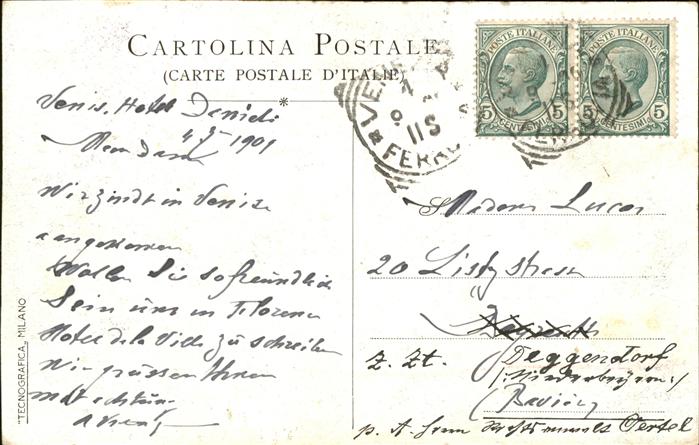 CARTOLINA POSTALE
(CARTE POSTALE D'ITALIE)
POSTE ITALIANE
5 CENTESIMI 5
POSTE ITALIANE
5 CENTESIMI 5
FERRO
11S
Venis. Hotel Danieli
1901
Wir zindt in Venise
angekommen
Wollen Sie so freundlich
Sein uns in Florenz
Hotel de la Ville zu schreiben
Wir grüssen Ihnen
"TECNOGRAFICA„ MILANO
Madame Lucas
20 Liszt strasse
Bayreuth
z. Zt. Deggendorf
(Niederbayern)
(Bavière)
p. A. Herrn Rechtsanwalt Oertel